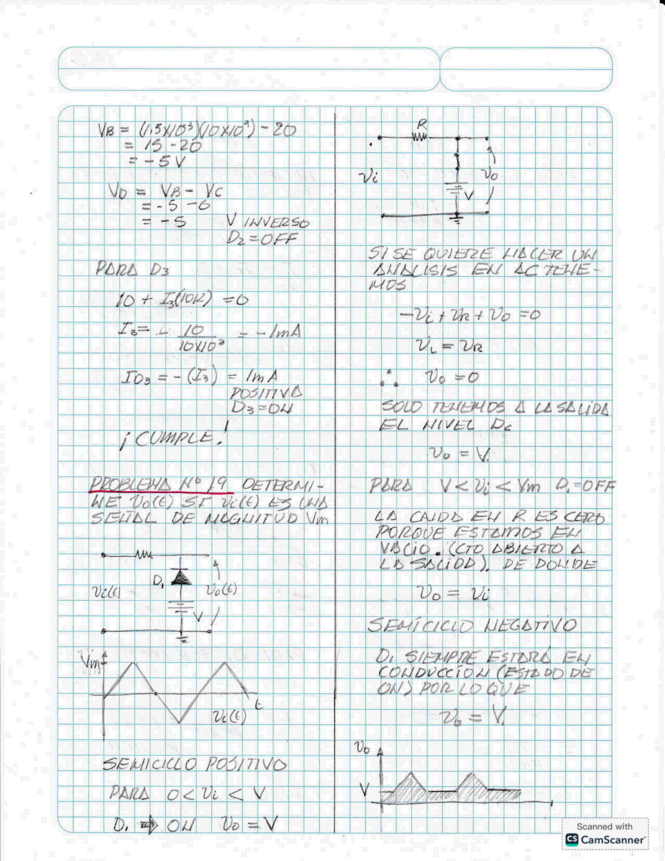 VB = (1,5x10³)(10x10³) - 20
= 15 - 20
= -5 V
VD = VB - VC
= -5 -6
= -5 V INVERSO
D2 = OFF
PARA D3
10 + I3(10K) = 0
I3 = - 10 / 10x10³ = -1mA
ID3 = -(I3) = 1mA
POSITIVA
D3 = ON
¡CUMPLE!
PROBLEMA Nº 19 DETERMI-
NE Vo(t) SI Vi(t) ES UNA
SEÑAL DE MAGNITUD Vm
D1
Vi(t)
Vo(t)
V
Vm
t
Vi(t)
SEMICICLO POSITIVO
PARA 0 < Vi < V
D1 ⇒ ON Vo = V
R
Vi
Vo
V
SI SE QUIERE HACER UN
ANALISIS EN AC TENE-
MOS
-Vi + VR + Vo = 0
Vi = VR
∴ Vo = 0
SOLO TENEMOS A LA SALIDA
EL NIVEL DC
Vo = V.
PARA V < Vi < Vm D1 = OFF
LA CAIDA EN R ES CERO
PORQUE ESTAMOS EN
VACIO. (CTO ABIERTO A
LA SALIDA). DE DONDE
Vo = Vi
SEMICICLO NEGATIVO
D1 SIEMPRE ESTARÁ EN
CONDUCCION (ESTADO DE
ON) POR LO QUE
Vo = V.
Vo
V
t
Scanned with
CS CamScanner